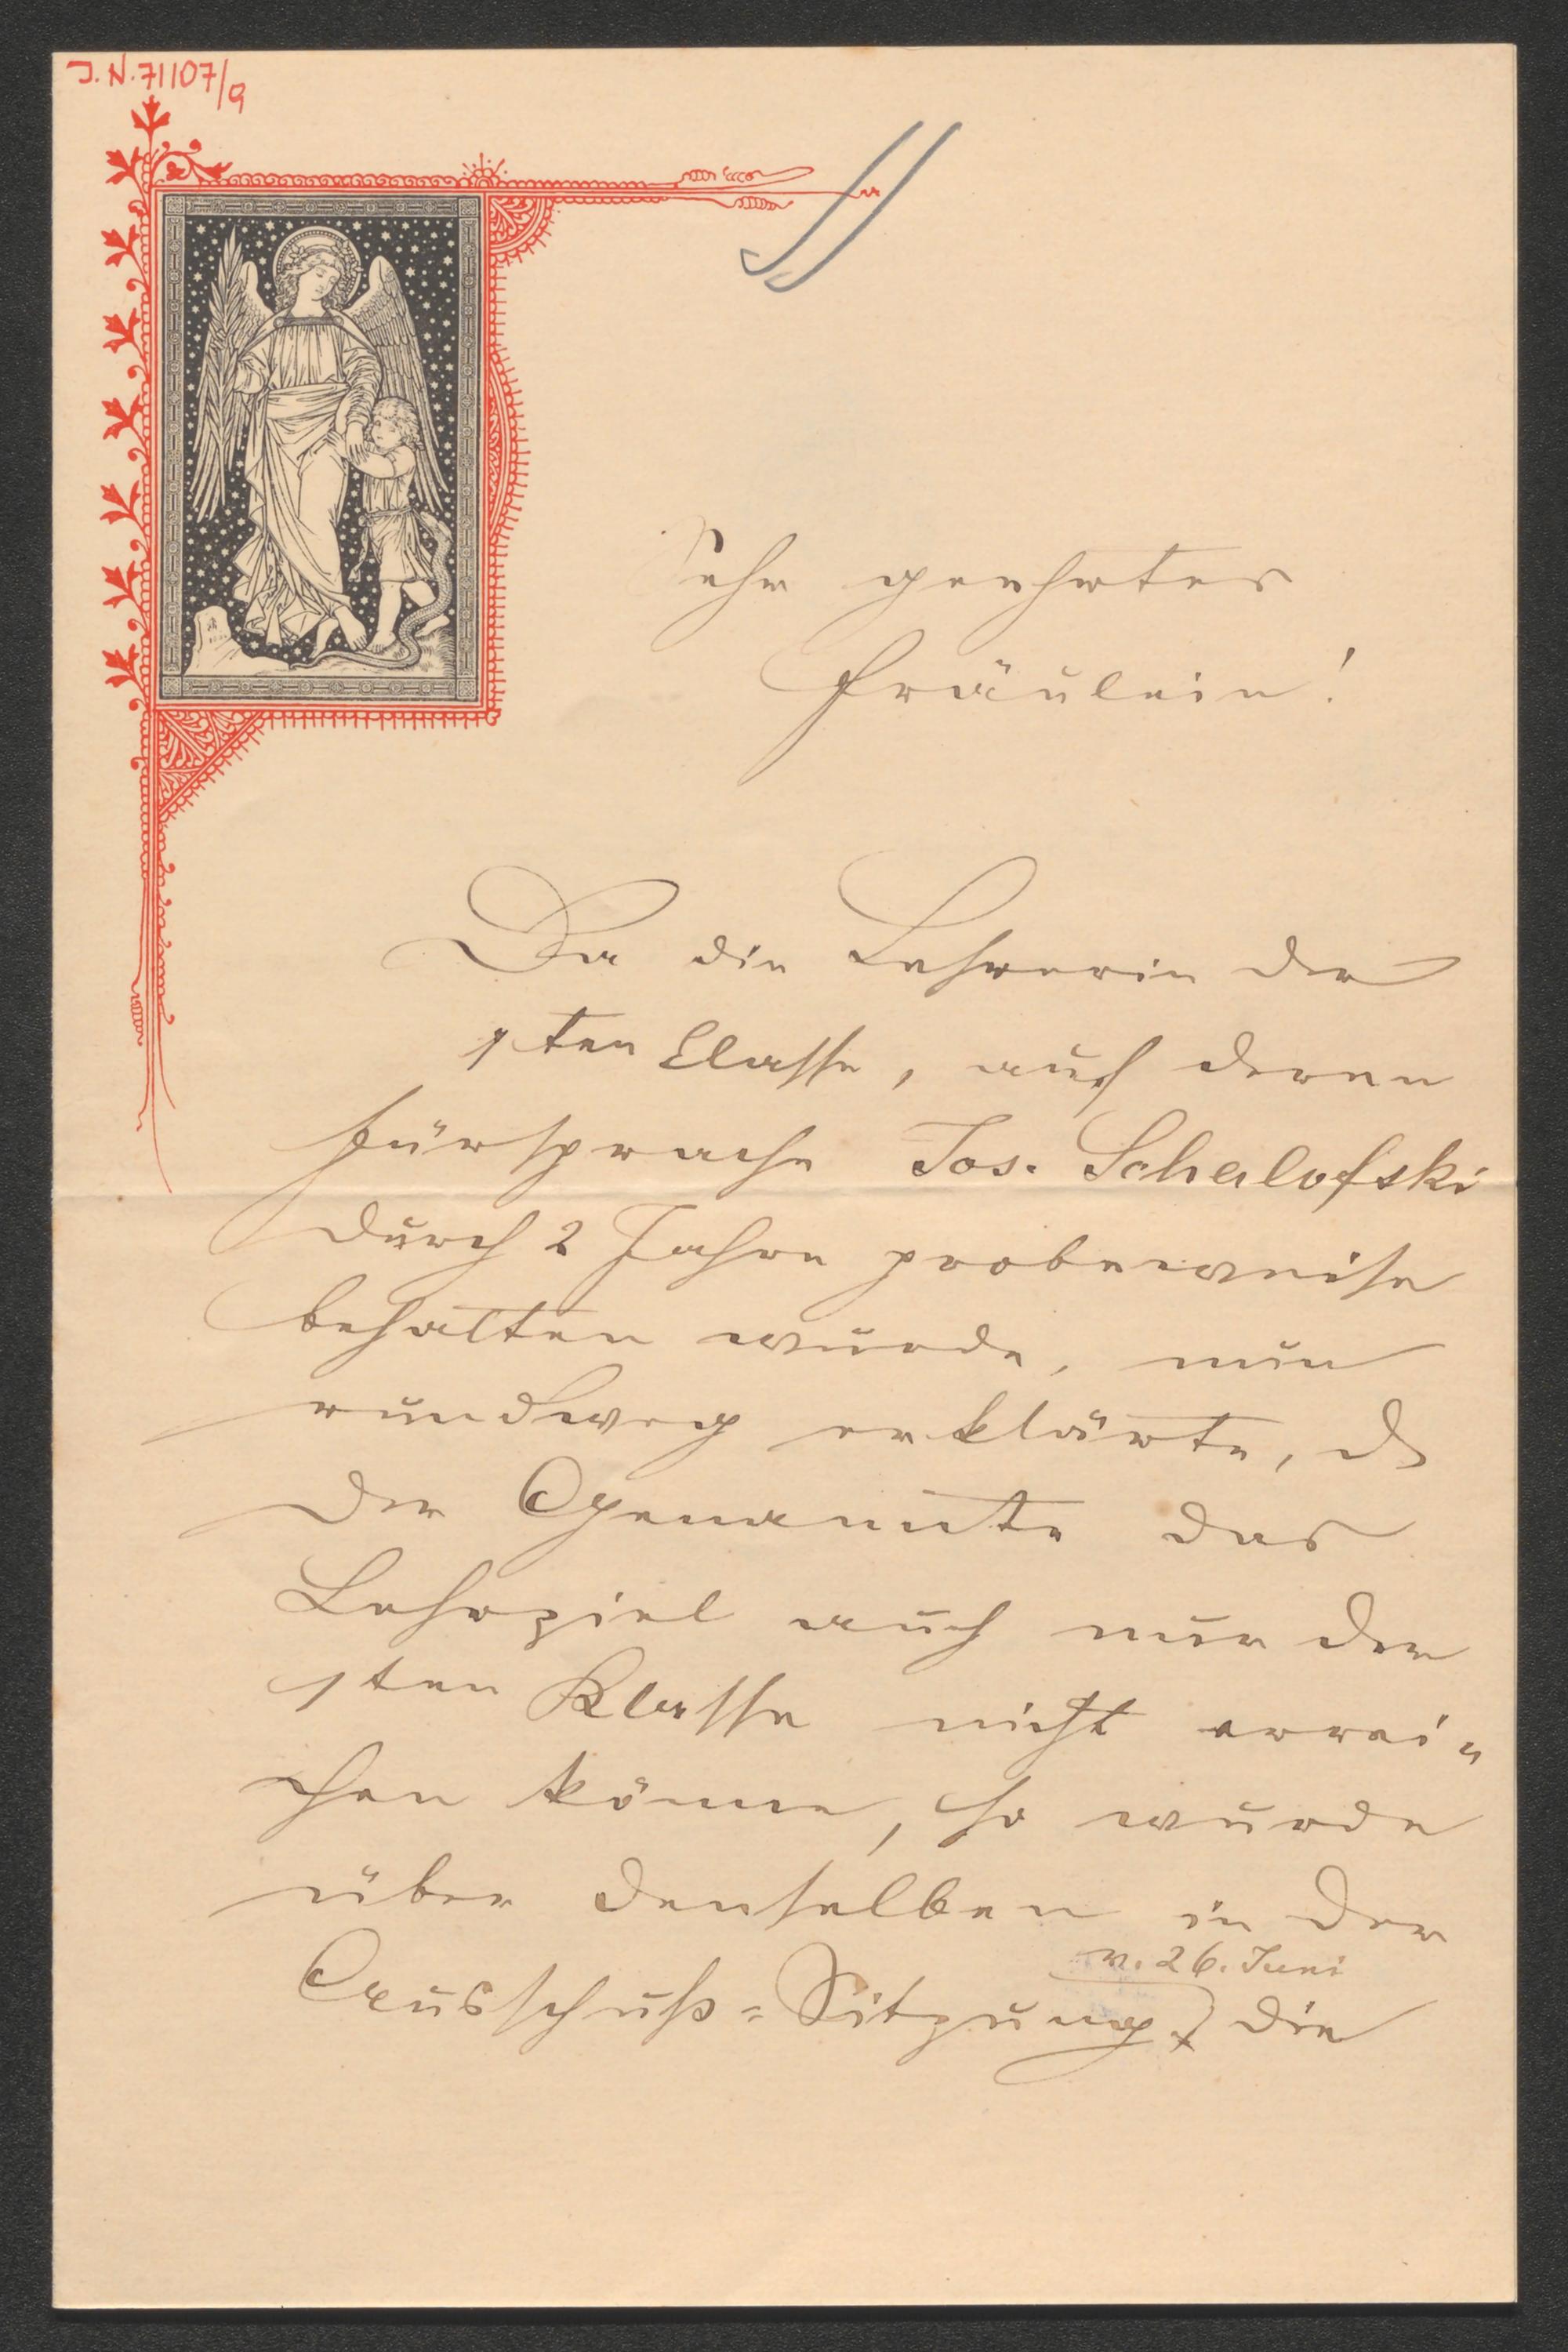 J. N. 71107/9
Sehr geehrtes
Fräulein!
Da die Lehrerin der
1ten Classe, auf deren
Fürsprache Jos. Schalofski
durch 2 Jahre probeweise
behalten wurde, nun
rundweg erklärte, ds
der Genannte das
Lehrziel auch nur der
1ten Klasse nicht errei=
chen könne, so wurde
über denselben in der
v. 26. Juni
Ausschuß=Sitzung die